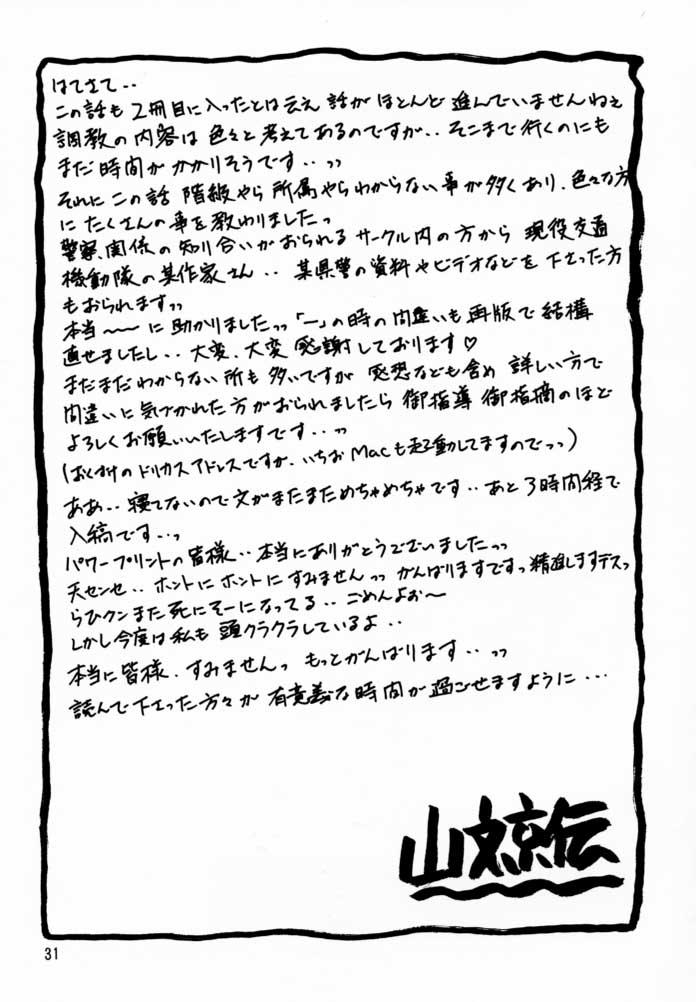 はてさて・・
この話も2冊目に入ったとは云え 話が ほとんど 進んでいませんねぇ
調教の内容は 色々と考えてあるのですが・・そこまで行くのにも
まだ時間が かかりそうです・・ッッ
それに この話 階級やら 所属やらわからない事が多くあり、色々な方
に たくさんの事を教わりましたっ
警察関係の知り合いがおられる サークル内の方から 現役交通
機動隊の某作家さん・・ 某県警の資料やビデオなどを 下さった方
もおられますッッ
本当〜〜に 助かりましたッッ「一」の時の間違いも再版で結構
直せましたし・・大変、大変 感謝しております♡
まだまだわからない所も多いですが 感想なども含め 詳しい方で
間違いに気づかれた方がおられましたら 御指導 御指摘のほど
よろしくお願いいたしますです・・ッッ
(おくづけのドリカスアドレスですが、いちおMacも起動してますのでッッ)
ああ・・寝てないので文がまたまためちゃめちゃです・・あと3時間程で
入稿です・・ッ
パワープリントの皆様・・本当にありがとうございましたッッ
天センセ・・ホントにホントにすみませんッッ がんばりますですっ精進しますデスっ
らひクンまた死にそーになってる・・ごめんよぉ〜
しかし今度は私も 頭クラクラしているよ・・
本当に皆様、すみませんっ もっとがんばります・・ッッ
読んで下さった方々が 有意義な時間が過ごせますように・・・
山文京伝
31